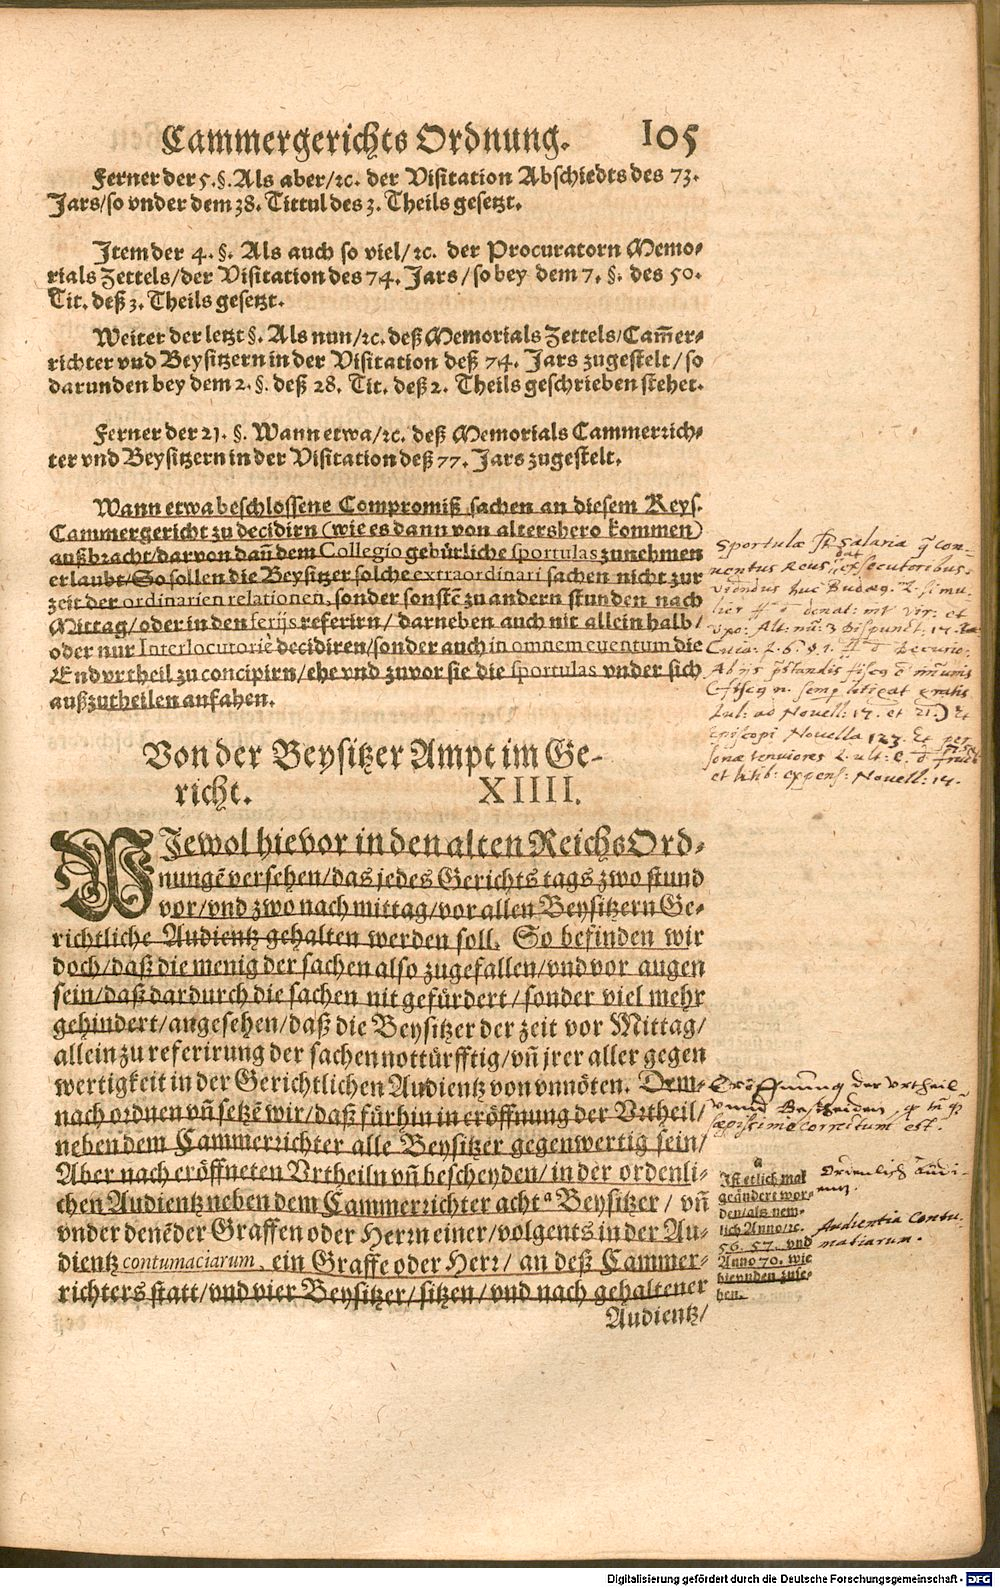 Cammergerichts Ordnung. 105
Ferner der 5. §. Als aber/ ꝛc. der Visitation Abschiedts des 73.
Jars/ so vnder dem 38. Tittul des 3. Theils gesetzt.
Item der 4. §. Als auch so viel/ ꝛc. der Procuratorn Memo⸗
rials Zettels/ der Visitation des 74. Jars/ so bey dem 7. §. des 50.
Tit. deß 3. Theils gesetzt.
Weiter der letzt §. Als nun/ ꝛc. deß Memorials Zettels/ Cam̃er⸗
richter vnd Beysitzern in der Visitation deß 74. Jars zugestelt/ so
darunden bey dem 2. §. deß 28. Tit. deß 2. Theils geschrieben stehet.
Ferner der 21. §. Wann etwa/ ꝛc. deß Memorials Cammerrich⸗
ter vnd Beysitzern in der Visitation deß 77. Jars zugestelt.
Wann etwa beschlossene Compromiß sachen an diesem Keys.
Cammergericht zu decidirn (wie es dann von altershero kommen)
außbracht/ darvon dañ dem Collegio gebürliche sportulas zunehmen
erlaubt/ So sollen die Beysitzer solche extraordinari sachen nicht zur
zeit der ordinarien relationen, sonder sonstẽ zu andern stunden nach
Mittag/ oder in den ferijs referirn/ darneben auch nit allein halb/
oder nur Interlocutoriè decidiren/ sonder auch in omnem euentum die
Endvrtheil zu concipirn/ ehe vnd zuvor sie die sportulas vnder sich
außzutheilen anfahen.
Sportulæ
Von der Beysitzer Ampt im Ge⸗
richt. XIIII.
WJewol hievor in den alten Reichs Ord⸗
nungẽ versehen/ das jedes Gerichts tags zwo stund
vor/ vnd zwo nach mittag/ vor allen Beysitzern Ge⸗
richtliche Audientz gehalten werden soll. So befinden wir
doch/ daß die menig der sachen also zugefallen/ vnd vor augen
sein/ daß dardurch die sachen nit gefürdert/ sonder viel mehr
gehindert/ angesehen/ daß die Beysitzer der zeit vor Mittag/
allein zu referirung der sachen nottürfftig/ vñ jrer aller gegen
wertigkeit in der Gerichtlichen Audientz von vnnöten. Dem⸗
nach ordnen vñ setzẽ wir/ daß fürhin in eröffnung der Vrtheil/
neben dem Cammerrichter alle Beysitzer gegenwertig sein/
Aber nach eröffneten Vrtheiln vñ bescheyden/ in der ordenli⸗
chen Audientz neben dem Cammerrichter acht a Beysitzer/ vñ
vnder denẽ der Graffen oder Herrn einer/ volgents in der Au⸗
dientz contumaciarum, ein Graffe oder Herr/ an deß Cammer⸗
richters statt/ vnd vier Beysitzer/ sitzen/ vnd nach gehaltener
Audientz/
Eröffnung der Vrtheil
vnnd Bescheiden
a
Ist etlich mal
geändert wor⸗
den/ als nem⸗
lich Anno/ ꝛc.
56. 57. vnd
Anno 70. wie
hiervnden zuse⸗
hen.
Ordenlich Audi-
entz.
Audientia Contu-
matiarum.
Digitalisierung gefördert durch die Deutsche Forschungsgemeinschaft - DFG